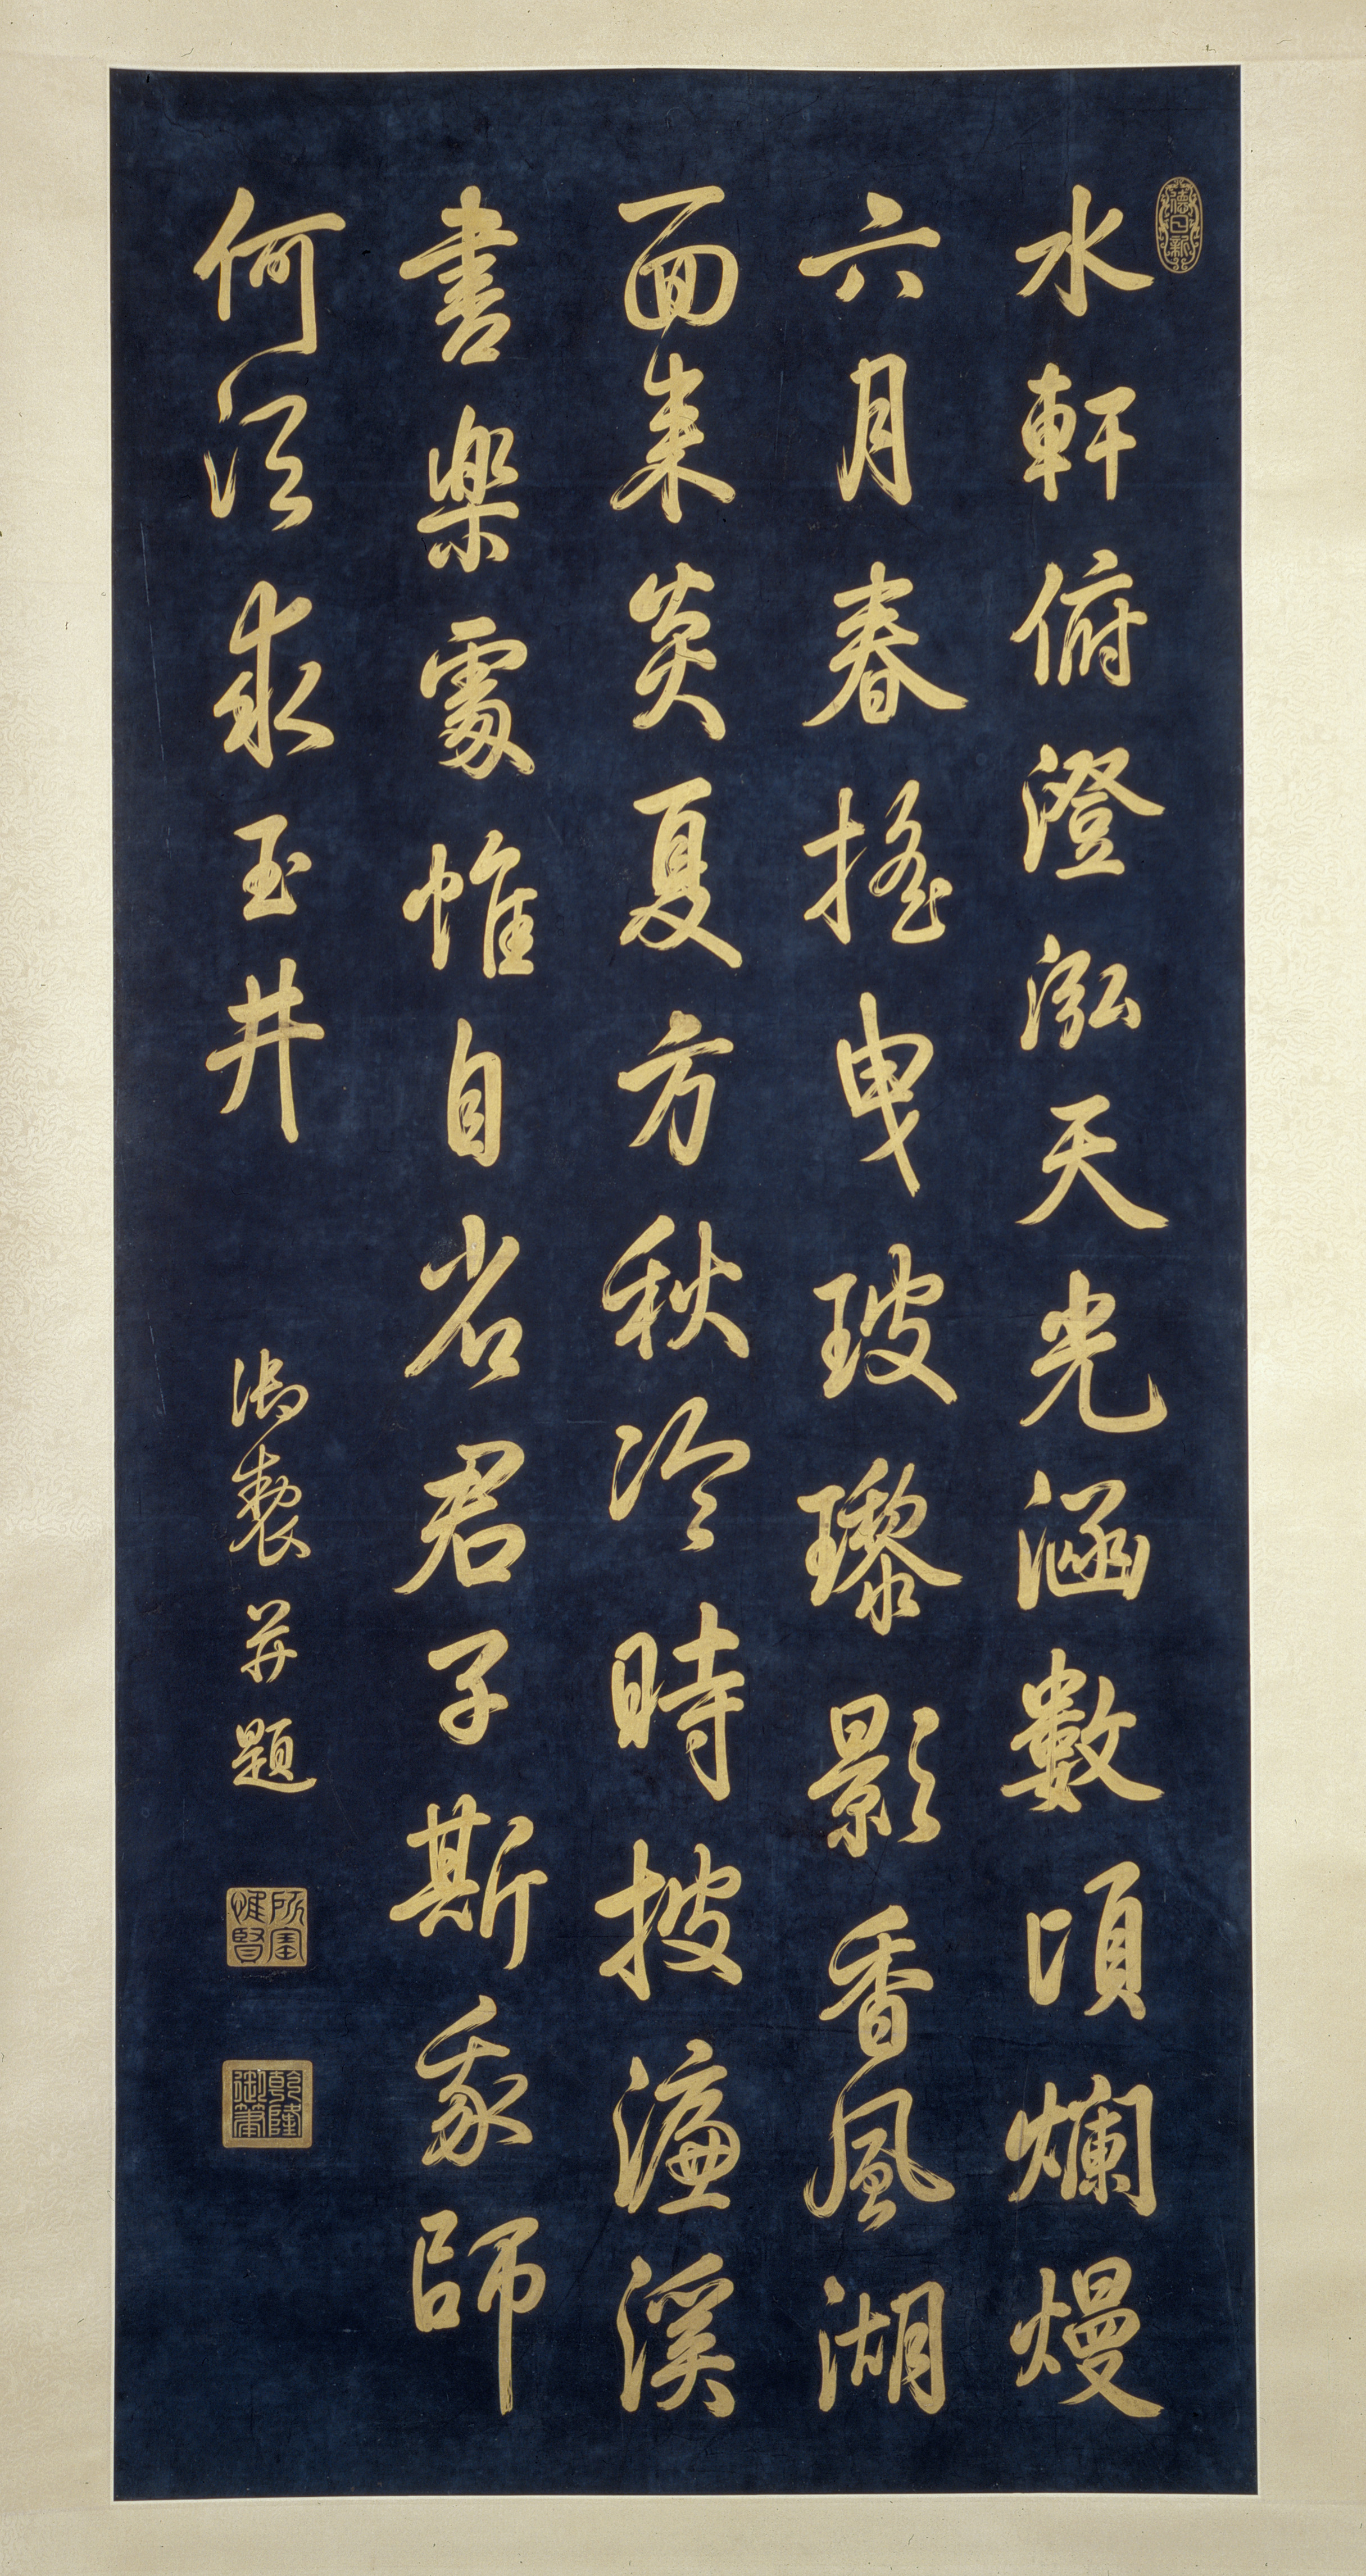 德日新
水軒俯澄泓天光涵數頃爛熳
六月春搖曳玻瓈影香風湖
面来炎夏方秋冷時披濂溪
書樂處惟自省君子斯我師
何須求玉井
御製并題
所寶惟賢
乾隆御筆